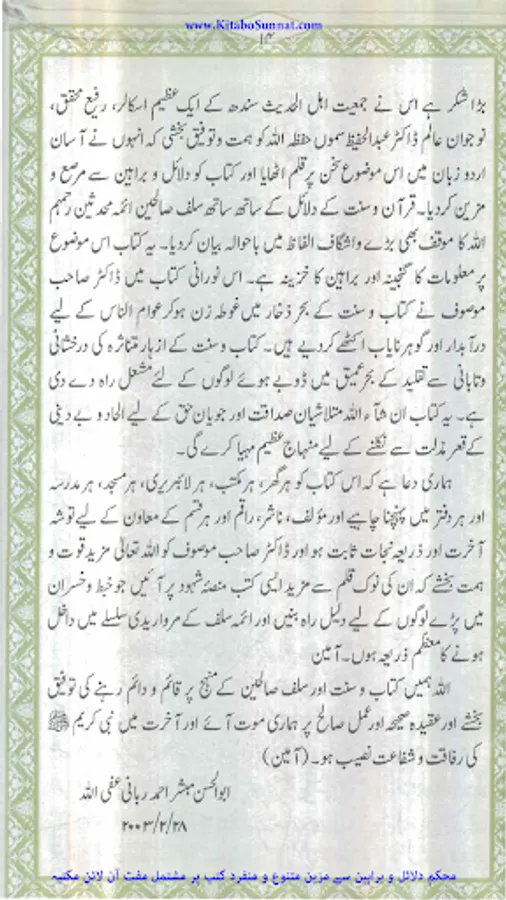 www.KitaboSunnat.com
۱۴
بڑا شکر ہے اس نے جمعیت اہل الحدیث سندھ کے ایک عظیم اسکالر، رفیع محقق،
نوجوان عالم ڈاکٹر عبدالحفیظ سموں حفظہ اللہ کو ہمت و توفیق بخشی کہ انہوں نے آسان
اردو زبان میں اس موضوع سخن پر قلم اٹھایا اور کتاب کو دلائل و براہین سے مرصع و
مزین کردیا۔ قرآن و سنت کے دلائل کے ساتھ ساتھ سلف صالحین ائمہ محدثین رحمہم
اللہ کا موقف بھی بڑے واشگاف الفاظ میں باحوالہ بیان کردیا۔ یہ کتاب اس موضوع
پر معلومات کا گنجینہ اور براہین کا خزینہ ہے۔ اس نورانی کتاب میں ڈاکٹر صاحب
موصوف نے کتاب و سنت کے بحر ذخار میں غوطہ زن ہوکر عوام الناس کے لیے
درآبدار اور گوہر نایاب اکٹھے کردیے ہیں۔ کتاب و سنت کے ازہار متناثرہ کی درخشانی
وتابانی سے تقلید کے بحر عمیق میں ڈوبے ہوئے لوگوں کے لئے مشعل راہ دے دی
ہے۔ یہ کتاب ان شآء اللہ متلاشیان صداقت اور جویان حق کے لیے الحاد و بے دینی
کے قعر مذلت سے نکلنے کے لیے منہاج عظیم مہیا کرے گی۔
ہماری دعا ہے کہ اس کتاب کو ہر گھر، ہر مکتب، ہر لائبریری، ہر مسجد، ہر مدرسہ
اور ہر دفتر میں پہنچنا چاہیے اور مؤلف، ناشر، راقم اور ہر قسم کے معاون کے لیے توشہ
آخرت اور ذریعہ نجات ثابت ہو اور ڈاکٹر صاحب موصوف کو اللہ تعالیٰ مزید قوت و
ہمت بخشے کہ ان کی نوک قلم سے مزید ایسی کتب منصۂ شہود پر آئیں جو خبط و خسران
میں پڑے لوگوں کے لیے دلیل راہ بنیں اور ائمہ سلف کے مرواریدی سلسلے میں داخل
ہونے کا معظم ذریعہ ہوں۔ آمین
اللہ ہمیں کتاب و سنت اور سلف صالحین کے منہج پر قائم و دائم رہنے کی توفیق
بخشے اور عقیدہ صحیحہ اور عمل صالح پر ہماری موت آئے اور آخرت میں نبی کریم ﷺ
کی رفاقت و شفاعت نصیب ہو۔ (آمین)
ابوالحسن مبشر احمد ربانی عفی اللہ
۲۰۰۳/۲/۲۸
محکم دلائل و براہین سے مزین متنوع و منفرد کتب پر مشتمل مفت آن لائن مکتبہ